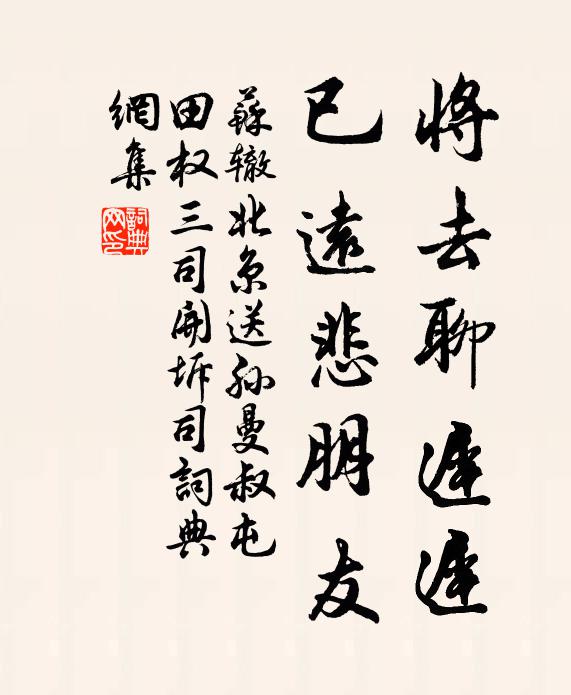 將去聊遲遲
已遠悲朋友
蘇辙北京送孙曼叔屯
田权三司開坼司詞典
網集
詞典网印